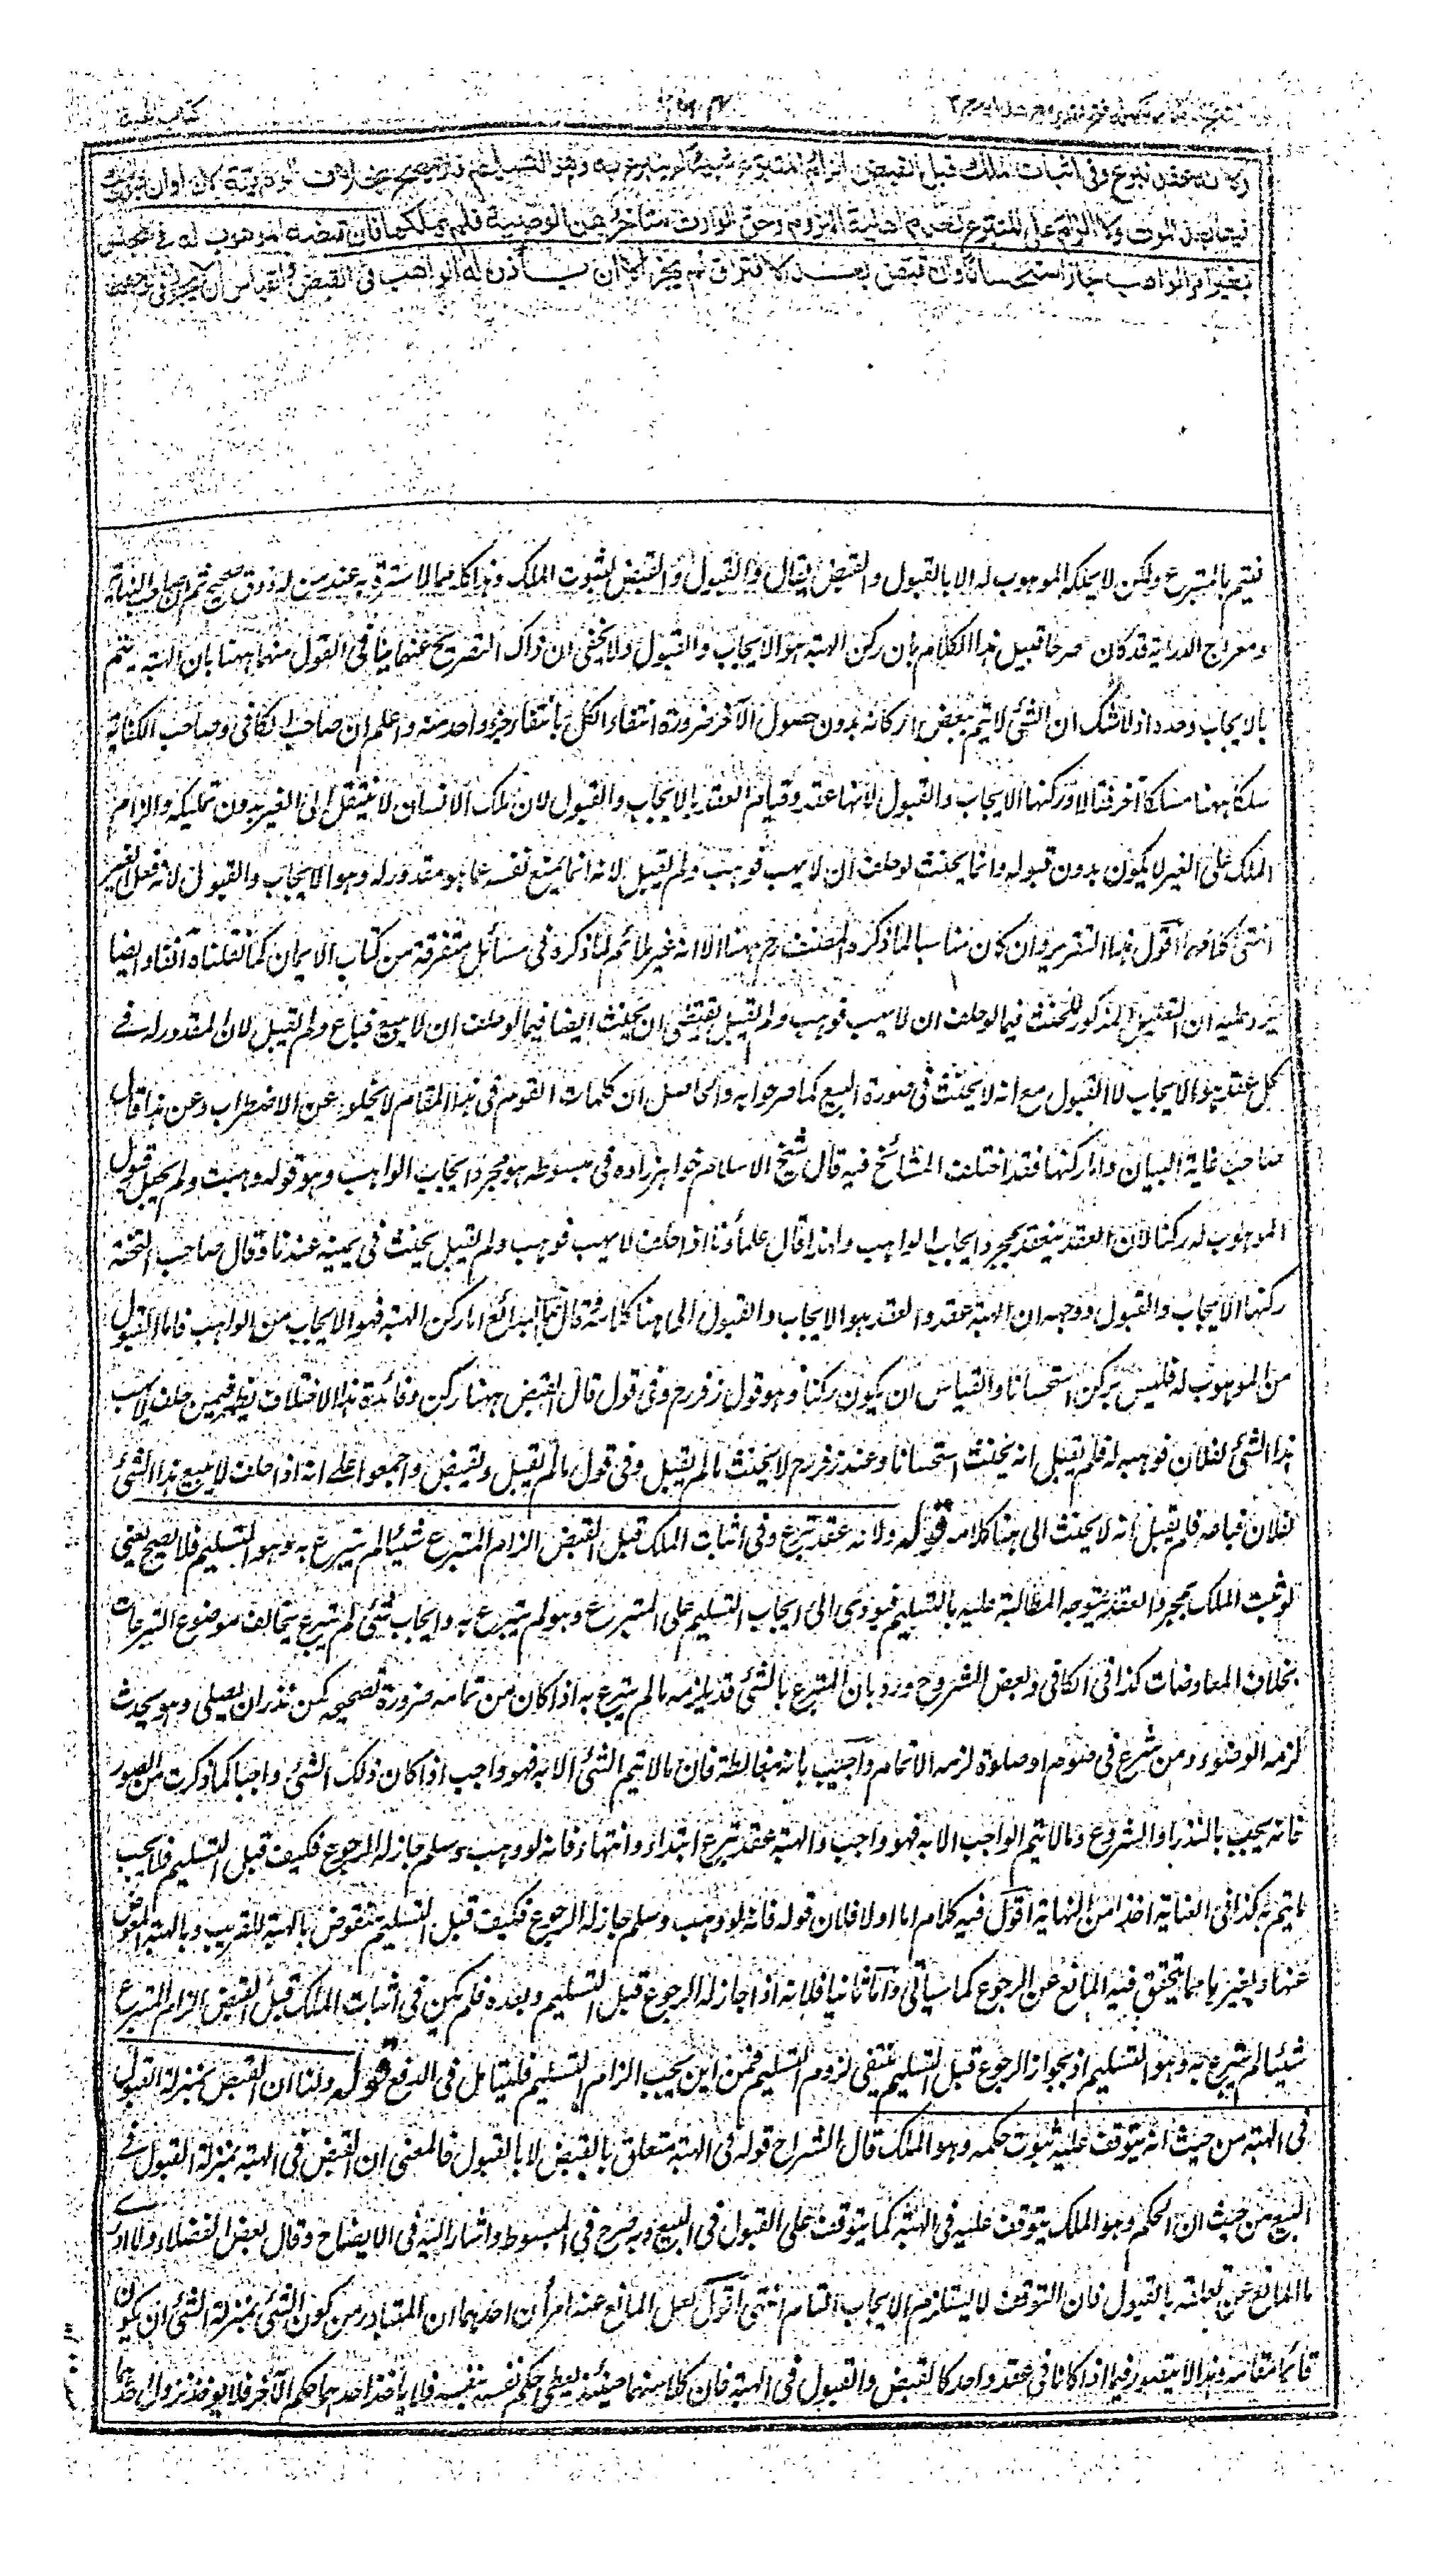 كتاب الهبة
ولانه عقد تبرع وفي اثبات الملك قبل القبض الزام المتبرع شيئا لم يتبرع به وهو التسليم فلا يصح بخلاف الوصية لان اوان ثبوت الملك
فيها بعد الموت ولا الزام على المتبرع لعدم اهلية اللزوم وحق الوارث متاخر عن الوصية فلم يملكها فان قبضه الموهوب له في المجلس
بغير امر الواهب جاز استحسانا وان قبض بعد الافتراق لم يجز الا ان يأذن له الواهب في القبض والقياس ان لا يجوز في الوجهين
فيتم بالمتبرع ولكن لا يملكه الموهوب له الا بالقبول والقبض يقال والقبول والقبض لثبوت الملك وهذا كله مما لا سترة به عند من له ذوق صحيح ثم ان صاحب النهاية
ومعراج الدراية قد كان صرحا قبيل هذا الكلام بان ركن الهبة هو الايجاب والقبول ولا يخفى ان ذاك التصريح عنهما ينافي القول منهما ههنا بان الهبة يتم
بالايجاب وحده اذ لا شك ان الشئ لا يتم ببعض اركانه بدون حصول الآخر ضرورة انتفاء الكل بانتفاء جزء واحد منه واعلم ان صاحب الكافي وصاحب الكفاية
سلكا ههنا مسلكا آخر فقالا وركنها الايجاب والقبول لانها عقد وقيام العقد بالايجاب والقبول لان ملك الانسان لا ينتقل الى الغير بدون تمليكه والزام
الملك على الغير لا يكون بدون قبوله وانما يحنث لو حلف ان لا يهب فوهب ولم يقبل لانه انما يمنع نفسه عما هو مقدور له وهو الايجاب والقبول لانه فعل الغير
انتهى كلامهما اقول هذا التقرير وان كان مناسبا لما ذكره المصنف رح ههنا الا انه غير ملائم لما ذكره في مسائل متفرقة من كتاب الايمان كما نقلناه آنفا وايضا
يرد عليه ان التعليل المذكور للحنث فيما لو حلف ان لا يهب فوهب ولم يقبل يقتضي ان يحنث ايضا فيما لو حلف ان لا يبيع فباع ولم يقبل لان المقدور له في
كل عقد هو الايجاب لا القبول مع انه لا يحنث في صورة البيع كما صرحوا به والحاصل ان كلمات القوم في هذا المقام لا يخلو عن الاضطراب وعن هذا قال
صاحب غاية البيان واما ركنها فقد اختلف المشائخ فيه قال شيخ الاسلام خواهر زاده في مبسوطه هو مجرد ايجاب الواهب وهو قوله وهبت ولم يجعل قبول
الموهوب له ركنا لان العقد ينعقد بمجرد ايجاب الواهب ولهذا قال علماؤنا اذا حلف لا يهب فوهب ولم يقبل يحنث في يمينه عندنا وقال صاحب التحفة
ركنها الايجاب والقبول ووجهه ان الهبة عقد والعقد هو الايجاب والقبول الى هنا كلامه قال في البدائع اما ركن الهبة فهو الايجاب من الواهب فاما القبول
من الموهوب له فليس بركن استحسانا والقياس ان يكون ركنا وهو قول زفر رح وفي قول قال القبض ههنا ركن وفائدة هذا الاختلاف يظهر فيمن حلف لا يهب
هذا الشئ لفلان فوهبه له فلم يقبل انه يحنث استحسانا وعند زفر رح لا يحنث ما لم يقبل وفي قول ما لم يقبل ويقبض واجمعوا على انه اذا حلف لا يبيع هذا الشئ
لفلان فباعه فلم يقبل انه لا يحنث الى هنا كلامه قوله ولانه عقد تبرع وفي اثبات الملك قبل القبض الزام المتبرع شيئا لم يتبرع به وهو التسليم فلا يصح يعني
لو ثبت الملك بمجرد العقد يتوجه المطالبة عليه بالتسليم فيؤدي الى ايجاب التسليم على المتبرع وهو لم يتبرع به وايجاب شئ لم يتبرع يخالف موضوع التبرعات
بخلاف المعاوضات كذا في الكافي وبعض الشروح ورد بان المتبرع بالشئ قد يلزمه ما لم يتبرع به اذا كان من تمامه ضرورة تصحيحه كمن نذر ان يصلي وهو يحدث
لزمه الوضوء ومن شرع في صوم او صلوة لزمه الاتمام واجيب بانه مغالطة فان ما لا يتم الشئ الا به فهو واجب اذا كان ذلك الشئ واجبا كما ذكرت من الصور
فانه يجب بالنذر او الشروع وما لا يتم الواجب الا به فهو واجب والهبة عقد تبرع ابتداء وانتهاء فانه لو وهب وسلم جاز له الرجوع فكيف قبل التسليم فلا يجب
ما يتم به كذا في العناية اخذا من النهاية اقول فيه كلام اما اولا فلان قوله فانه لو وهب وسلم جاز له الرجوع فكيف قبل التسليم منقوض بالهبة للقريب وبالهبة المعوض
عنها وبغيرهما مما يتحقق فيه المانع عن الرجوع كما سياتي واما ثانيا فلانه اذا جاز له الرجوع قبل التسليم وبعده فلم يكن في اثبات الملك قبل القبض الزام المتبرع
شيئا لم يتبرع به وهو التسليم اذ بجواز الرجوع قبل التسليم ينتفي لزوم التسليم فمن اين يجب الزام التسليم فليتامل في الدفع قوله ولنا ان القبض بمنزلة القبول
في الهبة من حيث انه يتوقف عليه ثبوت حكمه وهو الملك قال الشراح قوله في الهبة متعلق بالقبض لا بالقبول فالمعنى ان القبض في الهبة بمنزلة القبول في
البيع من حيث ان الحكم وهو الملك يتوقف عليه في الهبة كما يتوقف على القبول في البيع وبه صرح في المبسوط واشار اليه في الايضاح وقال بعض الفضلاء ولا ادري
ما المانع عن تعلقه بالقبول فان التوقف لا يستلزم الايجاب التام انتهى اقول لعل المانع عنه امران احدهما ان المتبادر من كون الشئ بمنزلة الشئ ان يكون
قائما مقامه وهذا لا يتصور فيما اذا كانا في عقد واحد كالقبض والقبول في الهبة فان كلا منهما حينئذ يعطى حكم نفسه بنفسه ولا ياخذ احدهما حكم الآخر فلا